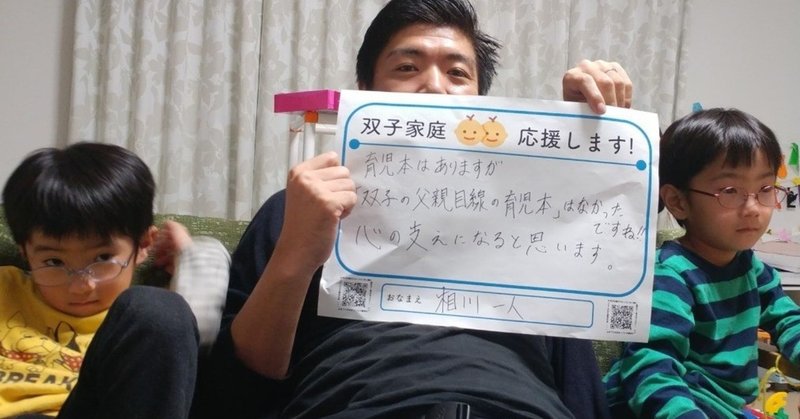 双子家庭 応援します!
育児本はありますが
「双子の父親目線の育児本」はなかった
ですね!!
心の支えになると思います。
おなまえ 相川 一人
BREAK